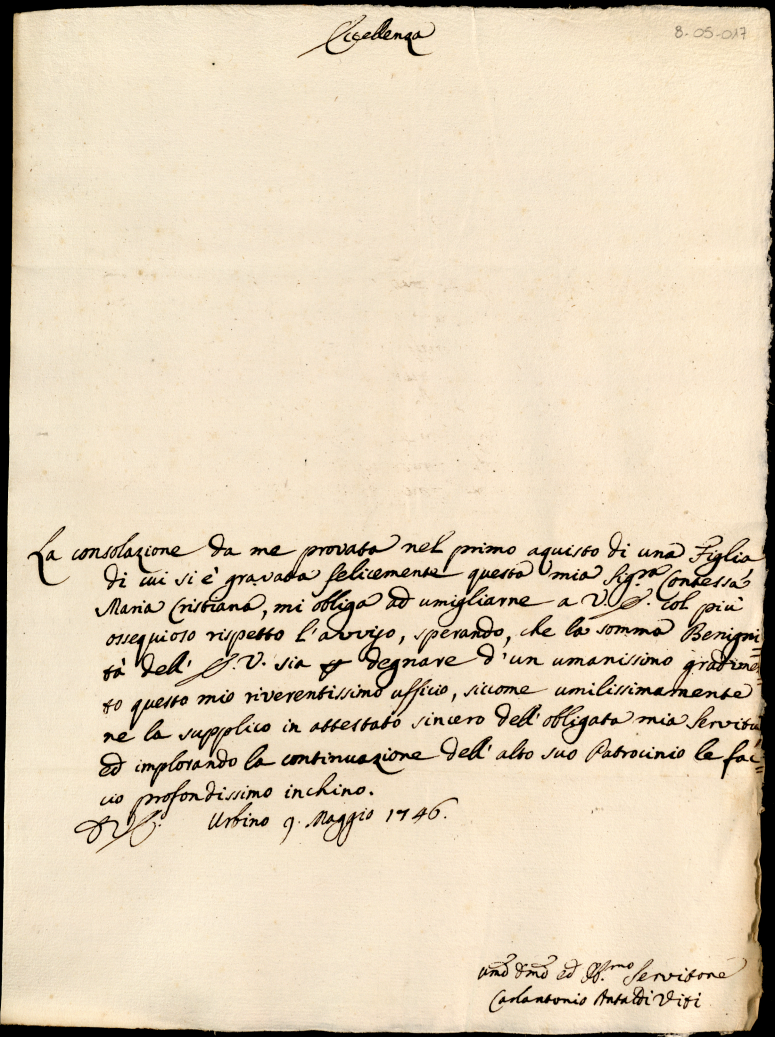 Eccellenza
8-05-017
La consolazione da me provata nel primo aquisto di una Figlia
di cui si è gravata felicemente questa mia Sig.ra Contessa
Maria Cristiana, mi obliga ad umigliarne a V. E. col più
ossequioso rispetto l'avviso, sperando, che la somma Benigni=
tà dell' E. V. sia p degnare d'un umanissimo gradime=
to questo mio riverentissimo ufficio, siccome umilissimamente
ne la supplico in attestato sincero dell'obligata mia servitù
ed implorando la continuazione dell'alto suo Patrocinio le fac=
cio profondissimo inchino.
D V. E. Urbino 9. Maggio 1746.
umo dmo ed Obb.mo Servitore
Carlantonio Antaldi Viti